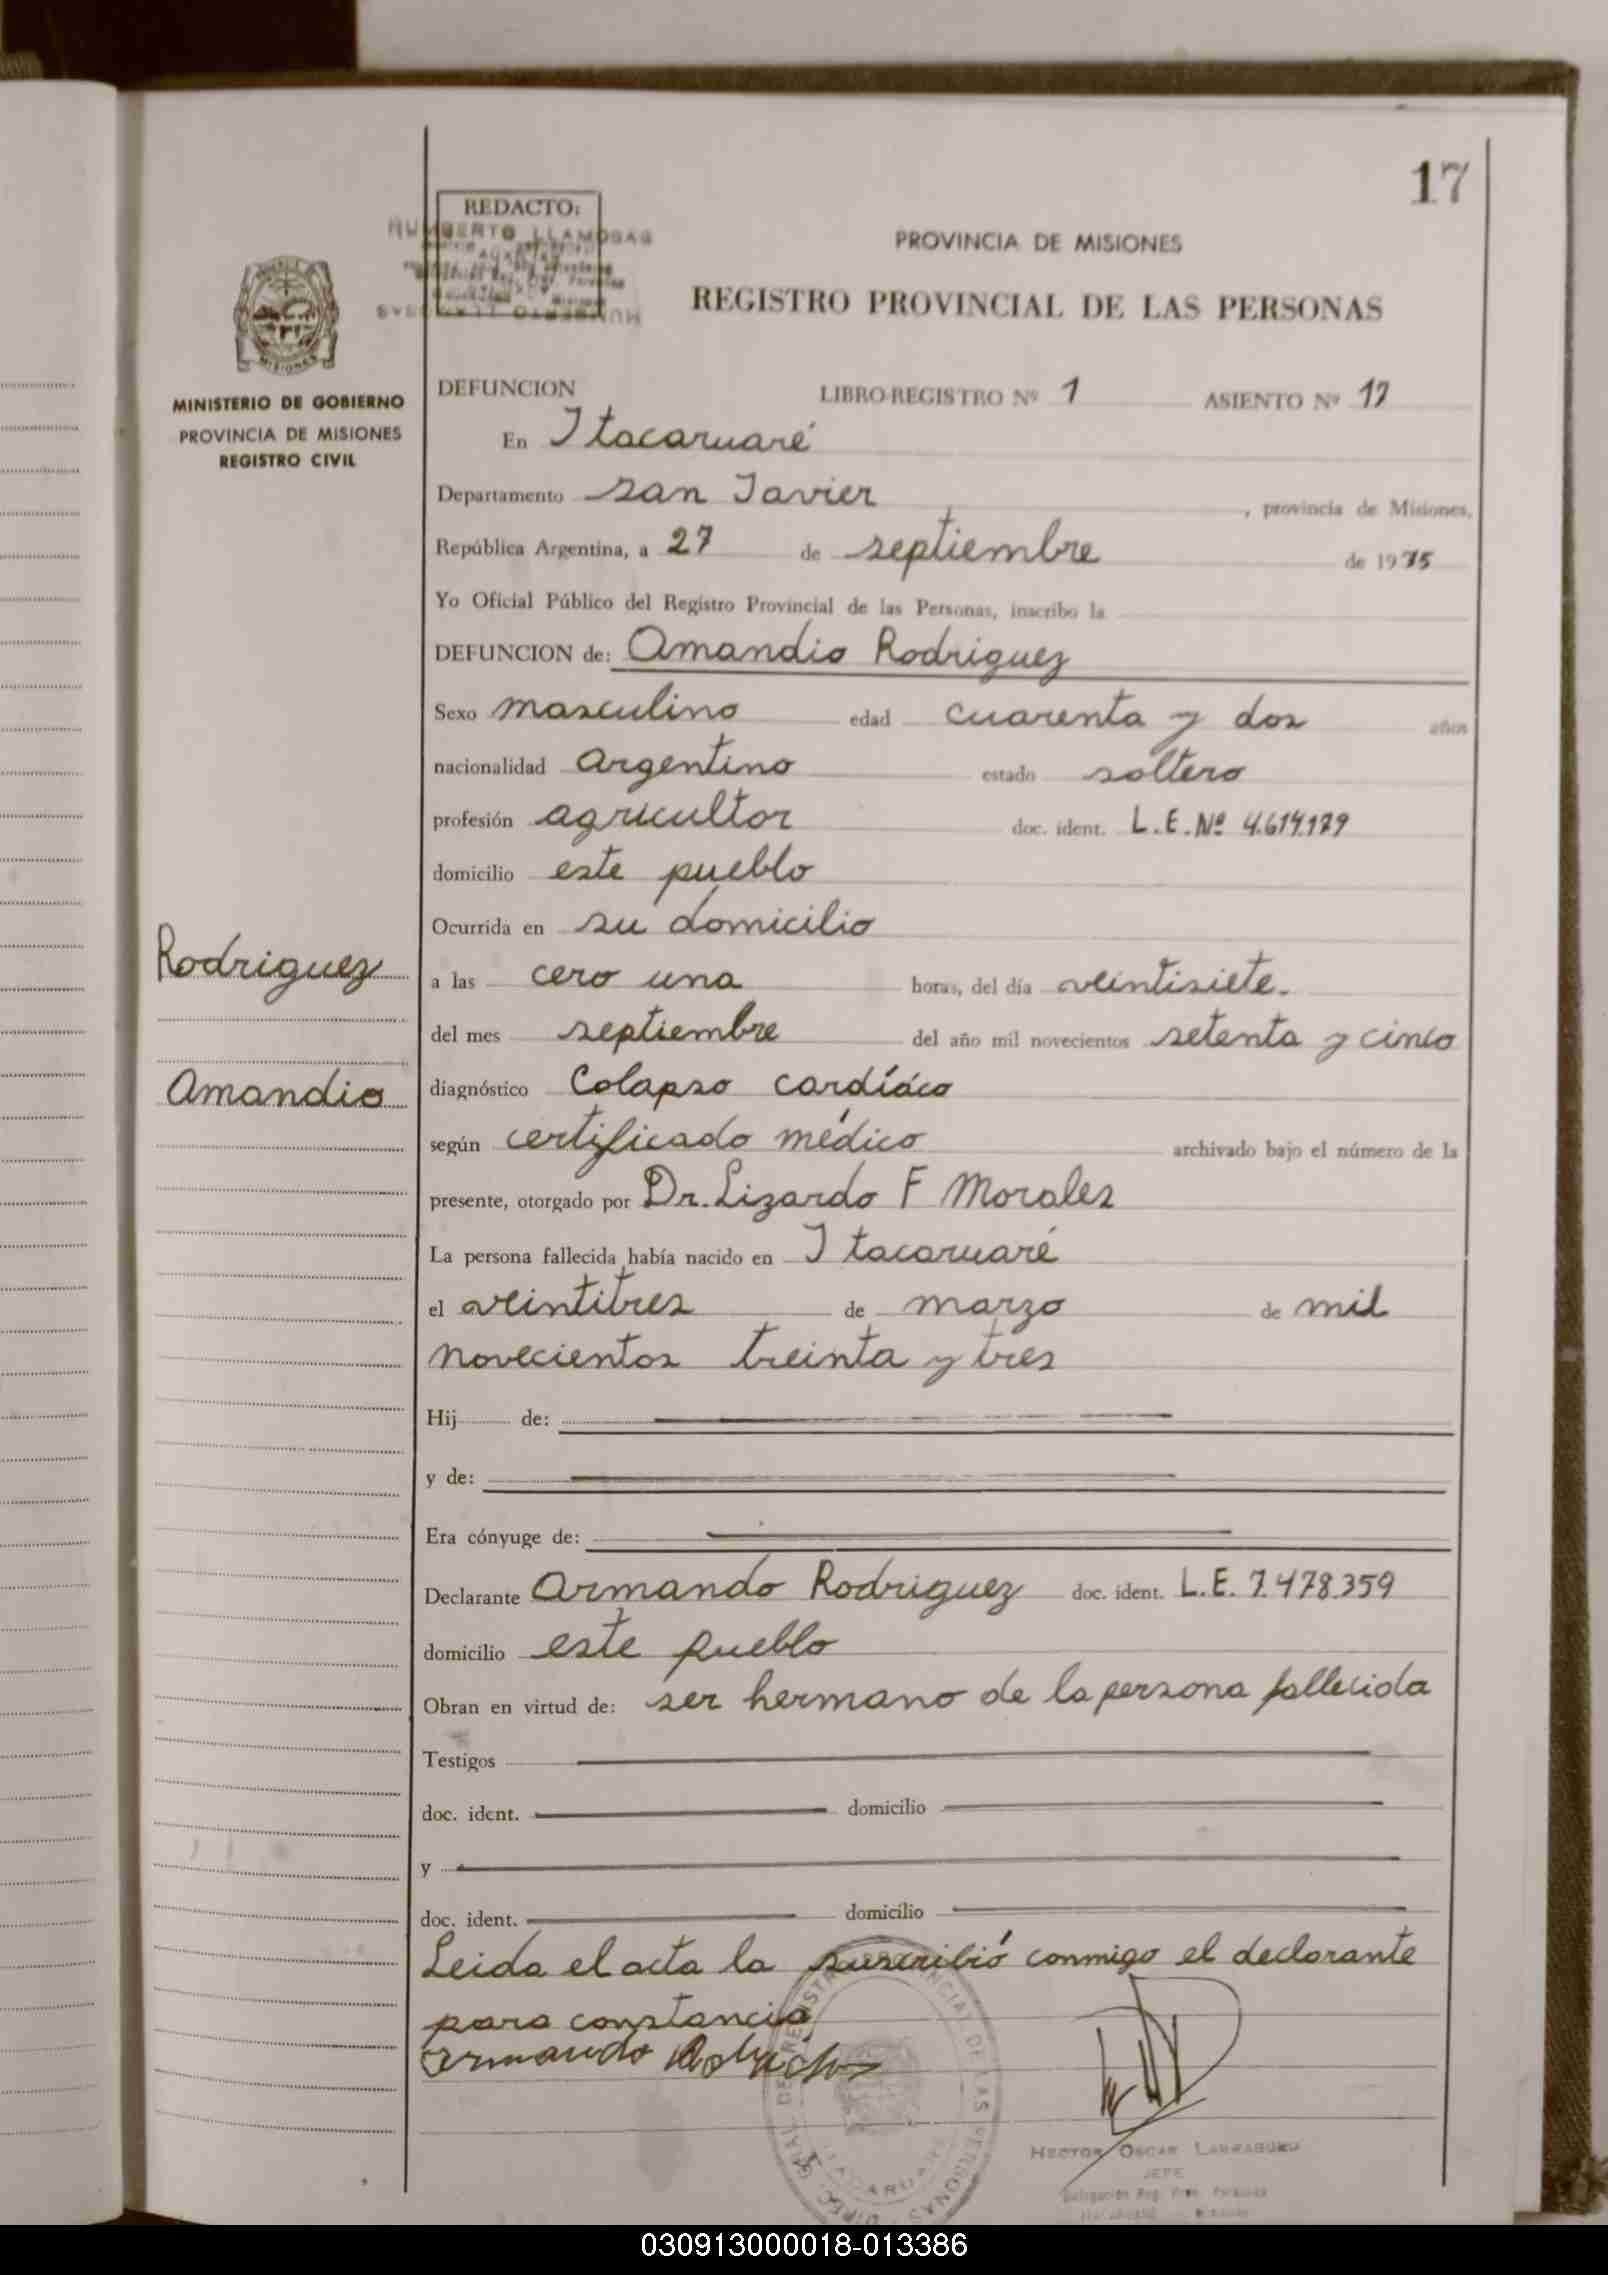 17
REDACTO:
HUMBERTO LLAMOSAS
PROVINCIA DE MISIONES
REGISTRO PROVINCIAL DE LAS PERSONAS
MISIONES
MINISTERIO DE GOBIERNO
PROVINCIA DE MISIONES
REGISTRO CIVIL
DEFUNCION LIBRO-REGISTRO Nº 1 ASIENTO Nº 17
En Itacaruaré
Departamento san Javier, provincia de Misiones,
República Argentina, a 27 de septiembre de 1975
Yo Oficial Público del Registro Provincial de las Personas, inscribo la
DEFUNCION de: Amandio Rodriguez
Sexo masculino edad cuarenta y dos años
nacionalidad argentino estado soltero
profesión agricultor doc. ident. L.E.Nº 4.614.179
domicilio este pueblo
Ocurrida en su domicilio
Rodriguez
a las cero una horas, del día veintisiete.
del mes septiembre del año mil novecientos setenta y cinco
Amandio
diagnóstico Colapso cardíáco
según certificado médico archivado bajo el número de la
presente, otorgado por Dr. Lizardo F Morales
La persona fallecida había nacido en Itacaruaré
el veintitres de marzo de mil
novecientos treinta y tres
Hij de:
y de:
Era cónyuge de:
Declarante Armando Rodriguez doc. ident. L.E. 7.478.359
domicilio este pueblo
Obran en virtud de: ser hermano de la persona fallecida
Testigos
doc. ident. domicilio
y
doc. ident. domicilio
Leida el acta la suscribió conmigo el declarante
para constancia
armando
HECTOR OSCAR
JEFE
030913000018-013386